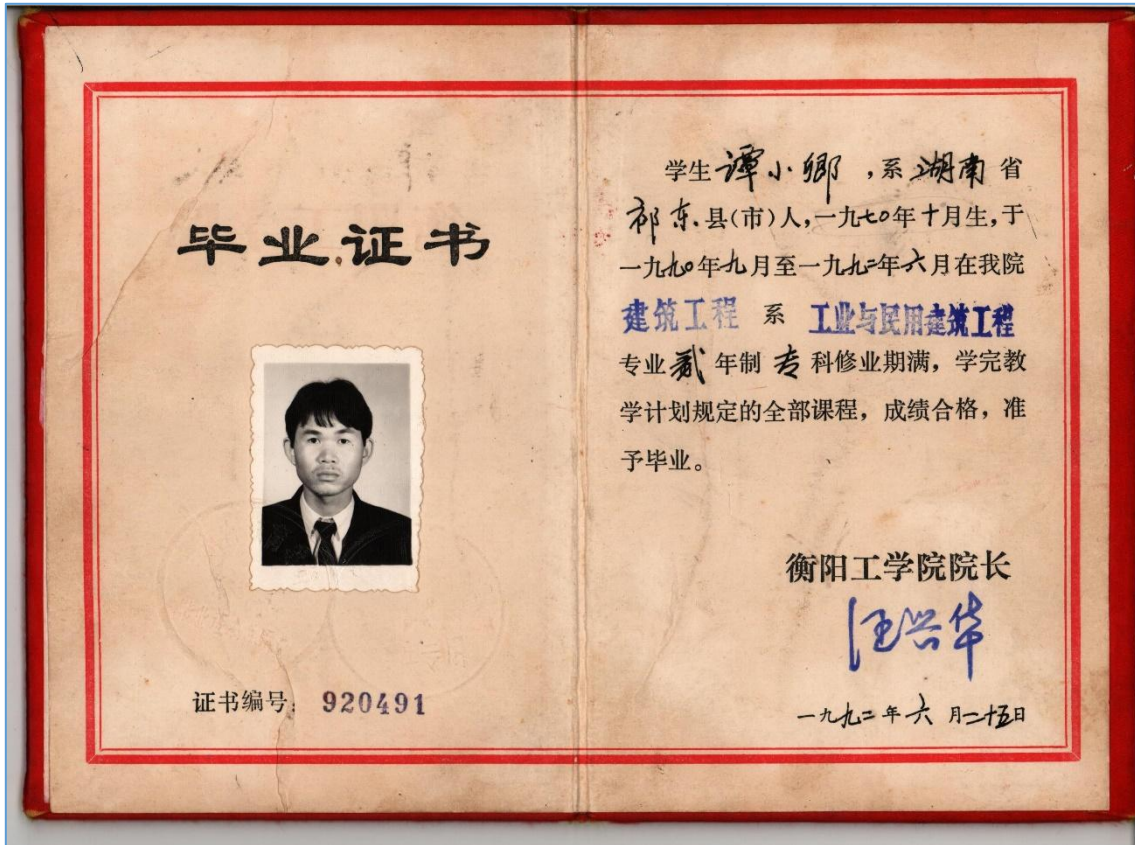 毕业证书
证书编号：920491
学生谭小乡，系湖南省
祁东县(市)人，一九七〇年十月生，于
一九九〇年九月至一九九二年六月在我院
建筑工程 系 工业与民用建筑工程
专业贰年制专科修业期满，学完教
学计划规定的全部课程，成绩合格，准
予毕业。
衡阳工学院院长
汪兴华
一九九二年六月二十五日